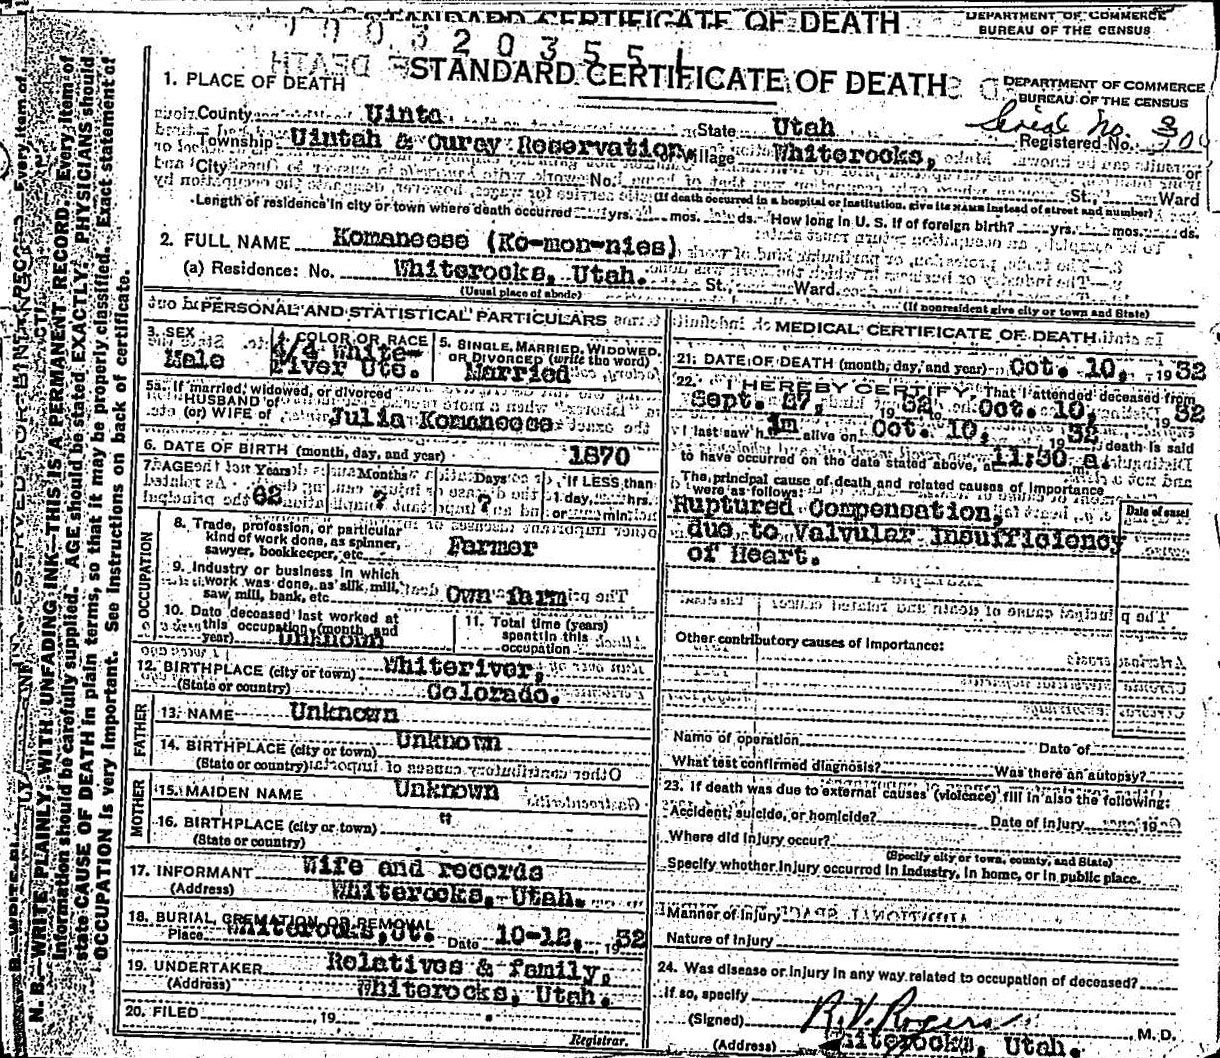 STANDARD CERTIFICATE OF DEATH
DEPARTMENT OF COMMERCE
BUREAU OF THE CENSUS
0 0 3 2 0 3 5 5 1
1. PLACE OF DEATH
STANDARD CERTIFICATE OF DEATH
DEPARTMENT OF COMMERCE
BUREAU OF THE CENSUS
County Uinta State Utah
Serial No.
Registered No.
Township Uintah & Ouray Reservation, or Village Whiterocks, or
City No. St., Ward
(If death occurred in a hospital or institution, give its NAME instead of street and number)
Length of residence in city or town where death occurred yrs. mos. ds. How long in U. S. if of foreign birth? yrs. mos. ds.
2. FULL NAME Komaneese (Ko-mon-nies)
(a) Residence: No. Whiterocks, Utah. St., Ward.
(Usual place of abode) (If nonresident give city or town and State)
PERSONAL AND STATISTICAL PARTICULARS
3. SEX Male
4. COLOR OR RACE 4/4 White-river Ute.
5. SINGLE, MARRIED, WIDOWED, OR DIVORCED (write the word) Married
5a. If married, widowed, or divorced
HUSBAND of
(or) WIFE of Julia Komaneese
6. DATE OF BIRTH (month, day, and year) 1870
7. AGE Years 62 Months ? Days ? If LESS than 1 day, hrs. or min.
OCCUPATION
8. Trade, profession, or particular
kind of work done, as spinner,
sawyer, bookkeeper, etc. Farmer
9. Industry or business in which
work was done, as silk mill,
saw mill, bank, etc. Own farm
10. Date deceased last worked at
this occupation (month and
year) Unknown
11. Total time (years)
spent in this
occupation
12. BIRTHPLACE (city or town) Whiteriver,
(State or country) Colorado.
FATHER
13. NAME Unknown
14. BIRTHPLACE (city or town) Unknown
(State or country)
MOTHER
15. MAIDEN NAME Unknown
16. BIRTHPLACE (city or town) "
(State or country)
17. INFORMANT Wife and records
(Address) Whiterocks, Utah.
18. BURIAL, CREMATION, OR REMOVAL
Place Whiterocks, Ut. Date 10-12, 1932
19. UNDERTAKER Relatives & family,
(Address) Whiterocks, Utah.
20. FILED , 19
Registrar.
MEDICAL CERTIFICATE OF DEATH
21. DATE OF DEATH (month, day, and year) Oct. 10, 1932
22. I HEREBY CERTIFY, That I attended deceased from
Sept. 27, 1932 to Oct. 10, 1932
I last saw h im alive on Oct. 10, 1932 death is said
to have occurred on the date stated above, at 11:30 a.
The principal cause of death and related causes of importance
were as follows:
Date of onset
Ruptured Compensation,
due to Valvular Insufficiency
of Heart.
Other contributory causes of importance:
Name of operation Date of
What test confirmed diagnosis? Was there an autopsy?
23. If death was due to external causes (violence) fill in also the following:
Accident, suicide, or homicide? Date of injury 19
Where did injury occur?
(Specify city or town, county, and State)
Specify whether injury occurred in industry, in home, or in public place.
Manner of injury
Nature of injury
24. Was disease or injury in any way related to occupation of deceased?
If so, specify
(Signed) R. V. Rogers , M. D.
(Address) Whiterocks, Utah.
N. B.—WRITE PLAINLY, WITH UNFADING INK—THIS IS A PERMANENT RECORD. Every item of
information should be carefully supplied. AGE should be stated EXACTLY. PHYSICIANS should
state CAUSE OF DEATH in plain terms, so that it may be properly classified. Exact statement of
OCCUPATION is very important. See instructions on back of certificate.